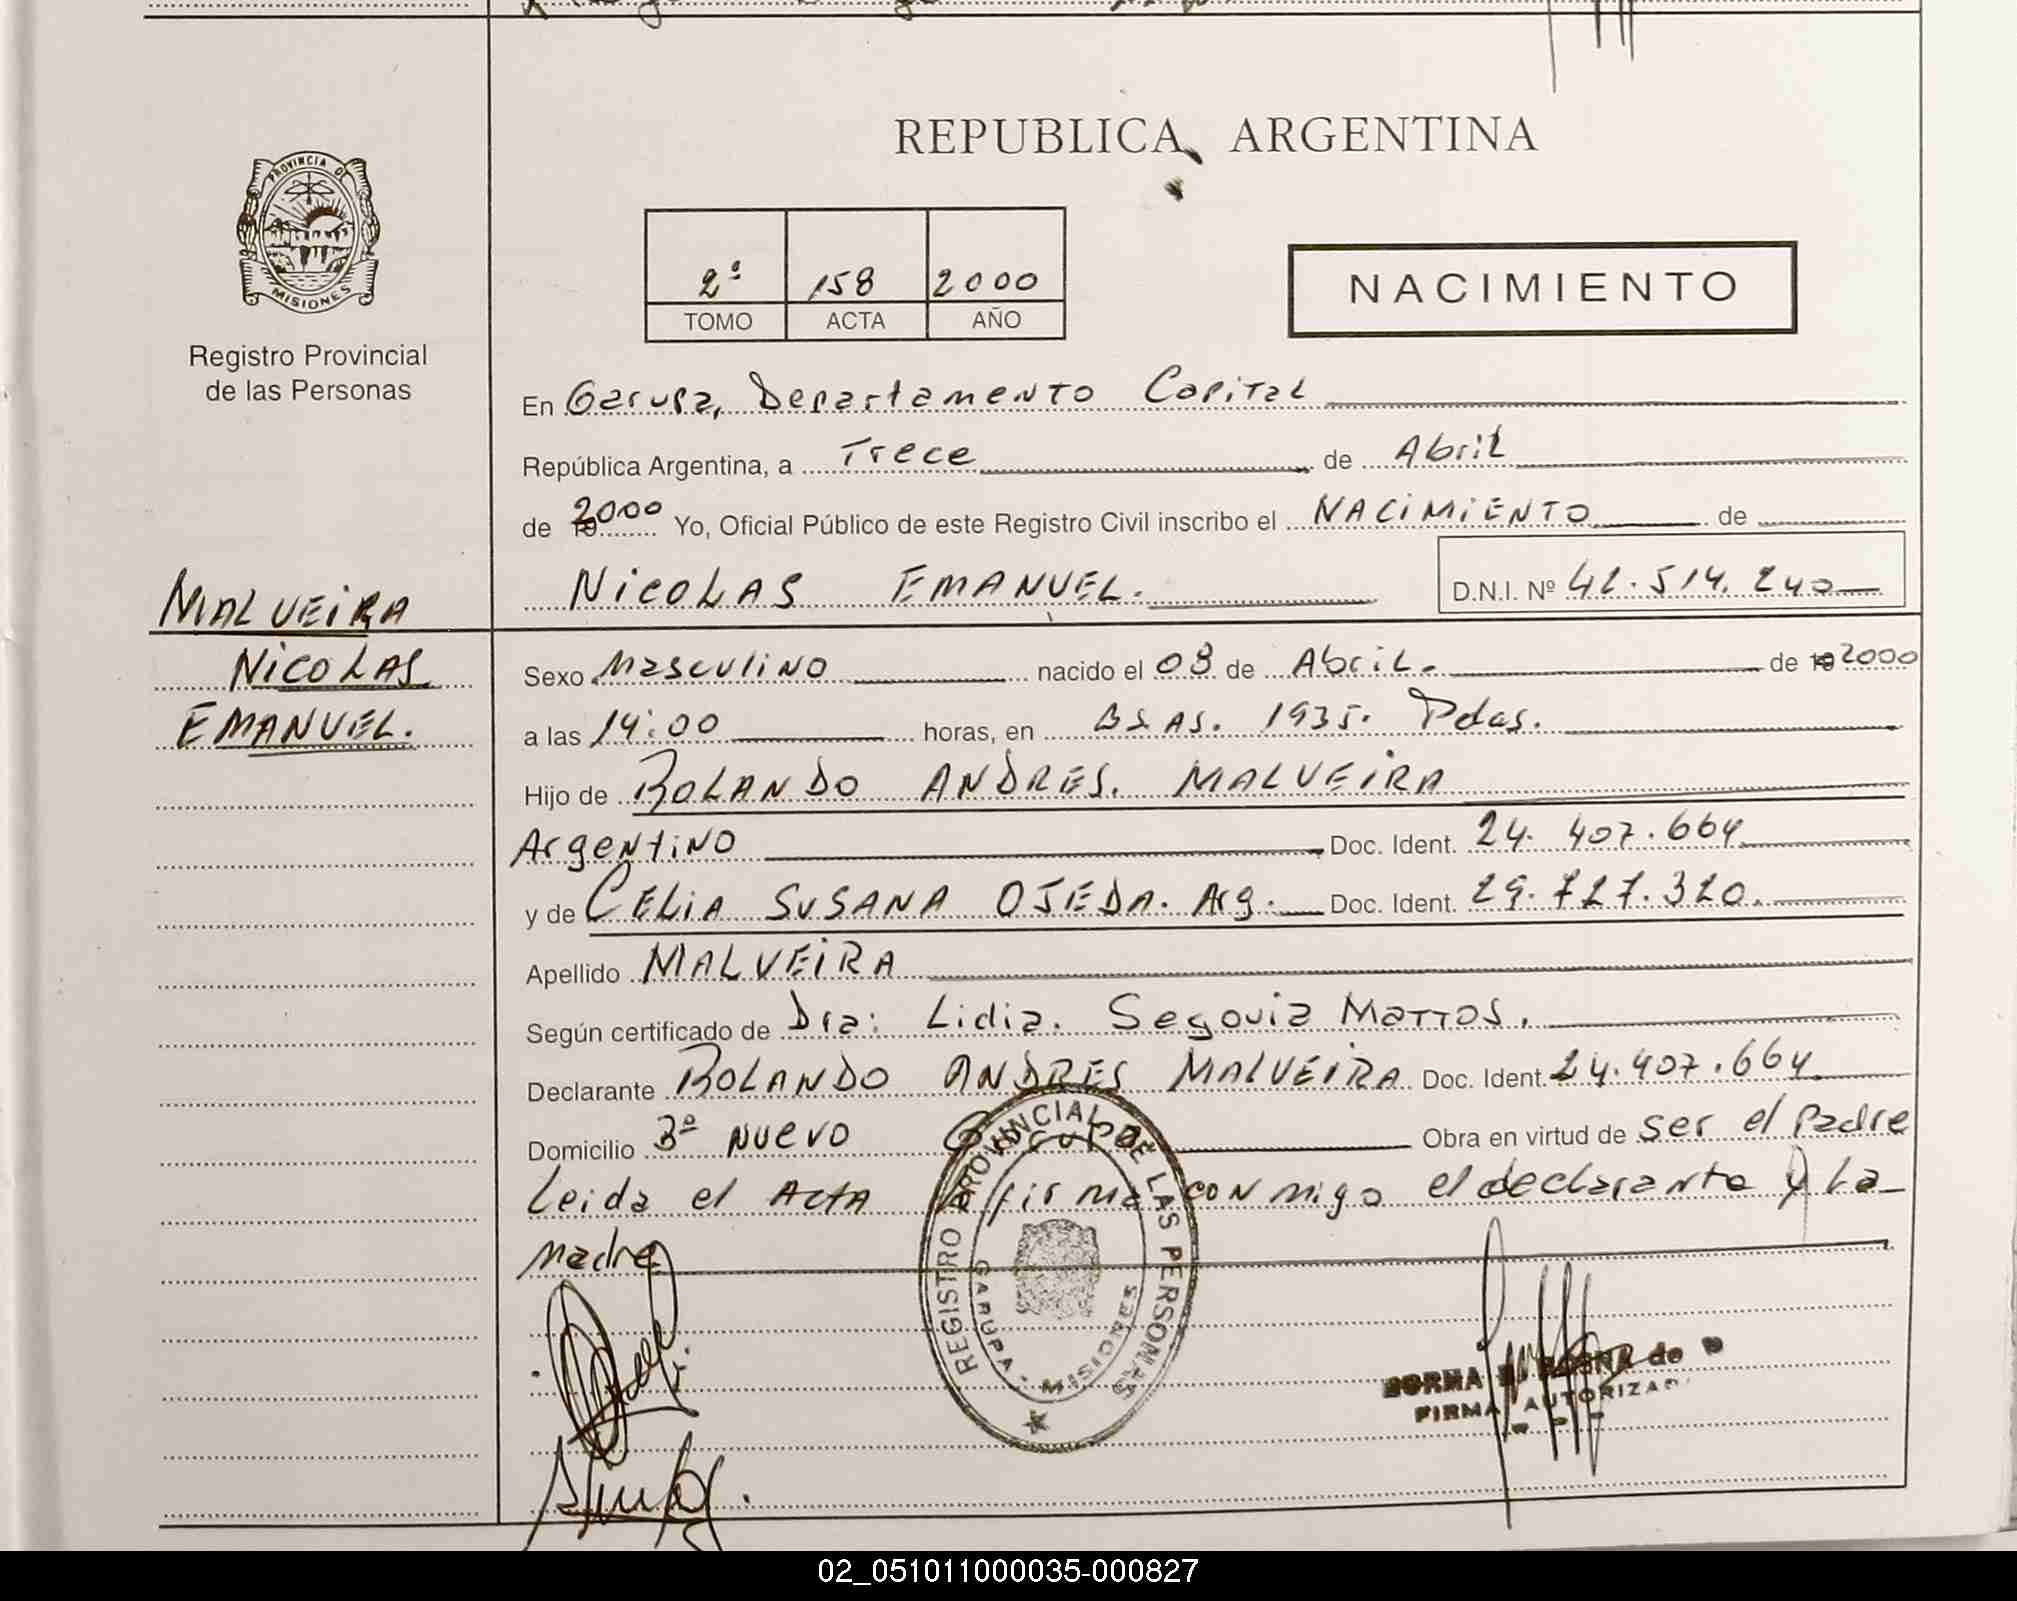 REPUBLICA ARGENTINA
PROVINCIA DE
MISIONES
Registro Provincial
de las Personas
2º 158 2000
TOMO ACTA AÑO
NACIMIENTO
En Garupa, Departamento Capital
República Argentina, a Trece de Abril
de 2000 Yo, Oficial Público de este Registro Civil inscribo el NACIMIENTO de
NICOLAS EMANUEL. D.N.I. Nº 42.514.240
MALVEIRA
NICOLAS
EMANUEL.
Sexo Masculino nacido el 08 de Abril. de 2000
a las 14:00 horas, en Bs As. 1935. Pdas.
Hijo de ROLANDO ANDRES. MALVEIRA
Argentino Doc. Ident. 24.407.664
y de CELIA SUSANA OJEDA. Arg. Doc. Ident. 29.727.320.
Apellido MALVEIRA
Según certificado de Dra: Lidia. Segovia Mattos.
Declarante ROLANDO ANDRES MALVEIRA Doc. Ident. 24.407.664
Domicilio 3º NUEVO Garupa Obra en virtud de ser el padre
Leida el Acta firma conmigo el declarante y La
madre
REGISTRO PROVINCIAL DE LAS PERSONAS
GARUPA - MISIONES
NORMA de
FIRMA AUTORIZADA
02_051011000035-000827